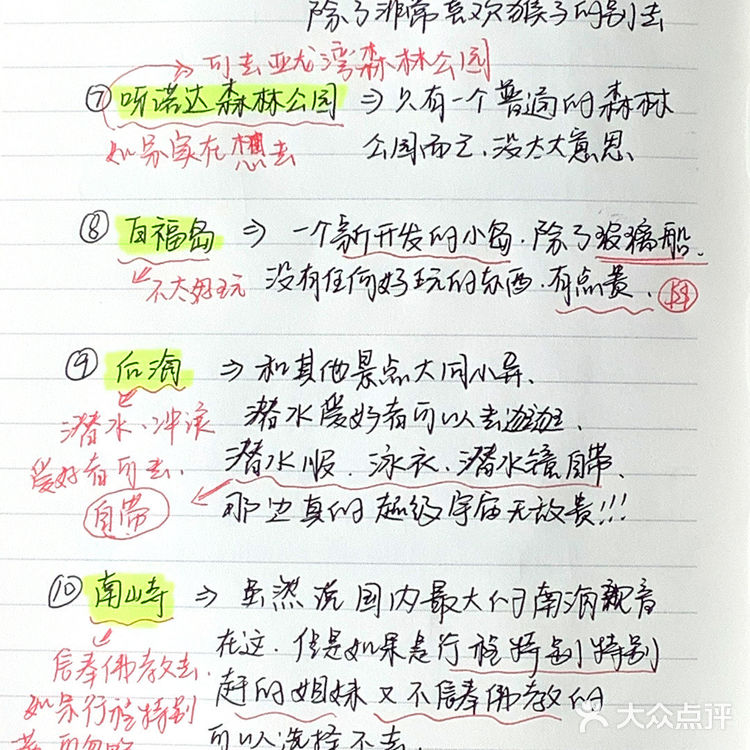 除了非常喜欢猴子的别去
可去亚龙湾森林公园
⑦ 呀诺达森林公园 ⇒ 只有一个普通的森林
如果实在想去 公园而已、没太大意思、
⑧ 百福岛 ⇒ 一个新开发的小岛、除了玻璃船、
不太好玩 没有任何好玩的东西、有点贵、
⑨ 后海 ⇒ 和其他景点大同小异、
潜水、冲浪 潜水爱好者可以去逛逛、
爱好者可去、 潜水服、泳衣、潜水镜自带、
自带 那边真的超级宇宙无敌贵!!!
⑩ 南山寺 ⇒ 虽然说国内最大的南海觀音
在这、但是如果是行程特别特别
信奉佛教去、 赶的姐妹又不信奉佛教的
如果行程特别
可以选择不去、
大众点评